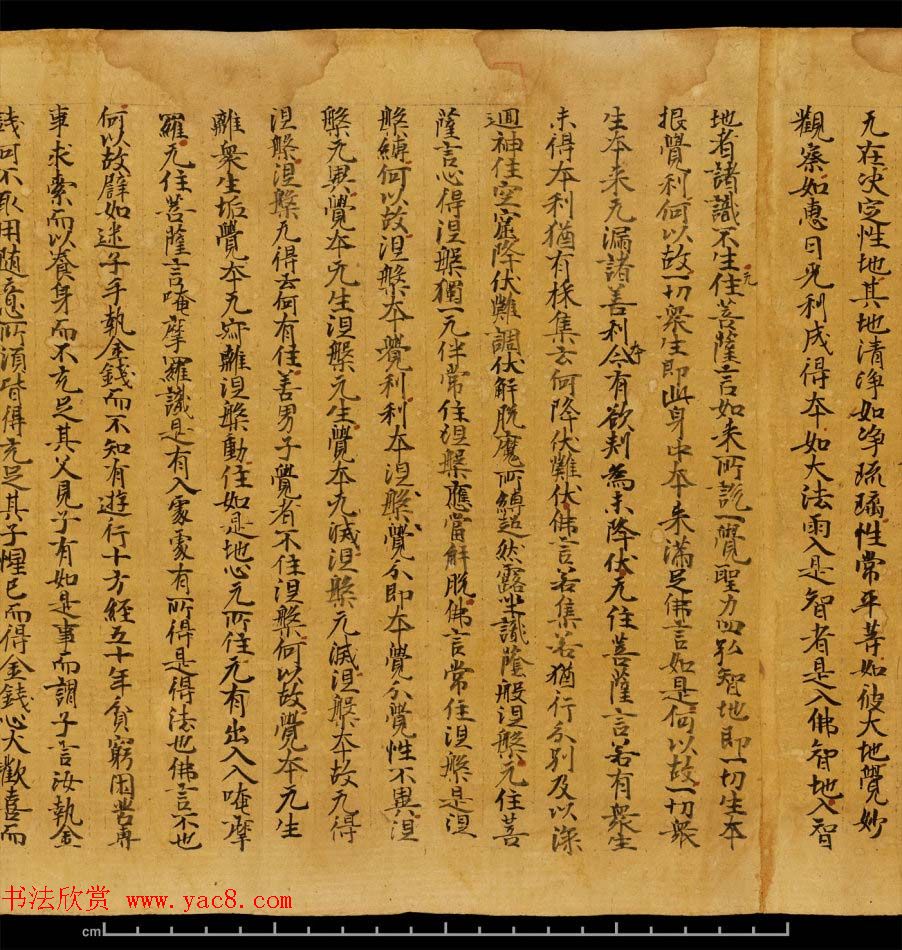 无在决定性地其地清净如净琉璃性常平等如彼大地覺妙
觀察如惠日光利成得本如大法雨入是智者是入佛智地入智
地者諸識不生无住菩薩言如来所說一覺聖力四弘智地即一切生本
根覺利何以故一切衆生即此身中本来滿足佛言如是何以故一切衆
生本来无漏諸善利本今有欲刺為未降伏无住菩薩言若有衆生
未得本利猶有採集云何降伏難伏佛言若集若獨行分别及以染
迴神住空窟降伏難調伏解脱魔所縛超然露坐識蔭般涅槃无住菩
薩言心得涅槃獨一无伴常住涅槃應當解脱佛言常住涅槃是涅
槃縛何以故涅槃本覺利利本涅槃覺分即本覺分覺性不異涅
槃无異覺本无生涅槃无生覺本无滅涅槃无滅涅槃本故无得
涅槃涅槃无得云何有住善男子覺者不住涅槃何以故覺本无生
離衆生垢覺本无寂離涅槃動住如是地心无所住无有出入入唵摩
羅无住菩薩言唵摩羅識是有入處處有所得是得法也佛言不也
何以故譬如迷子手執金錢而不知有遊行十方經五十年貧窮困苦專
事求索而以養身而不充足其父見子有如是事而謂子言汝執金
錢何不取用随意所須皆得充足其子惺已而得金錢心大歡喜而
书法欣赏 www.yac8.com
cm